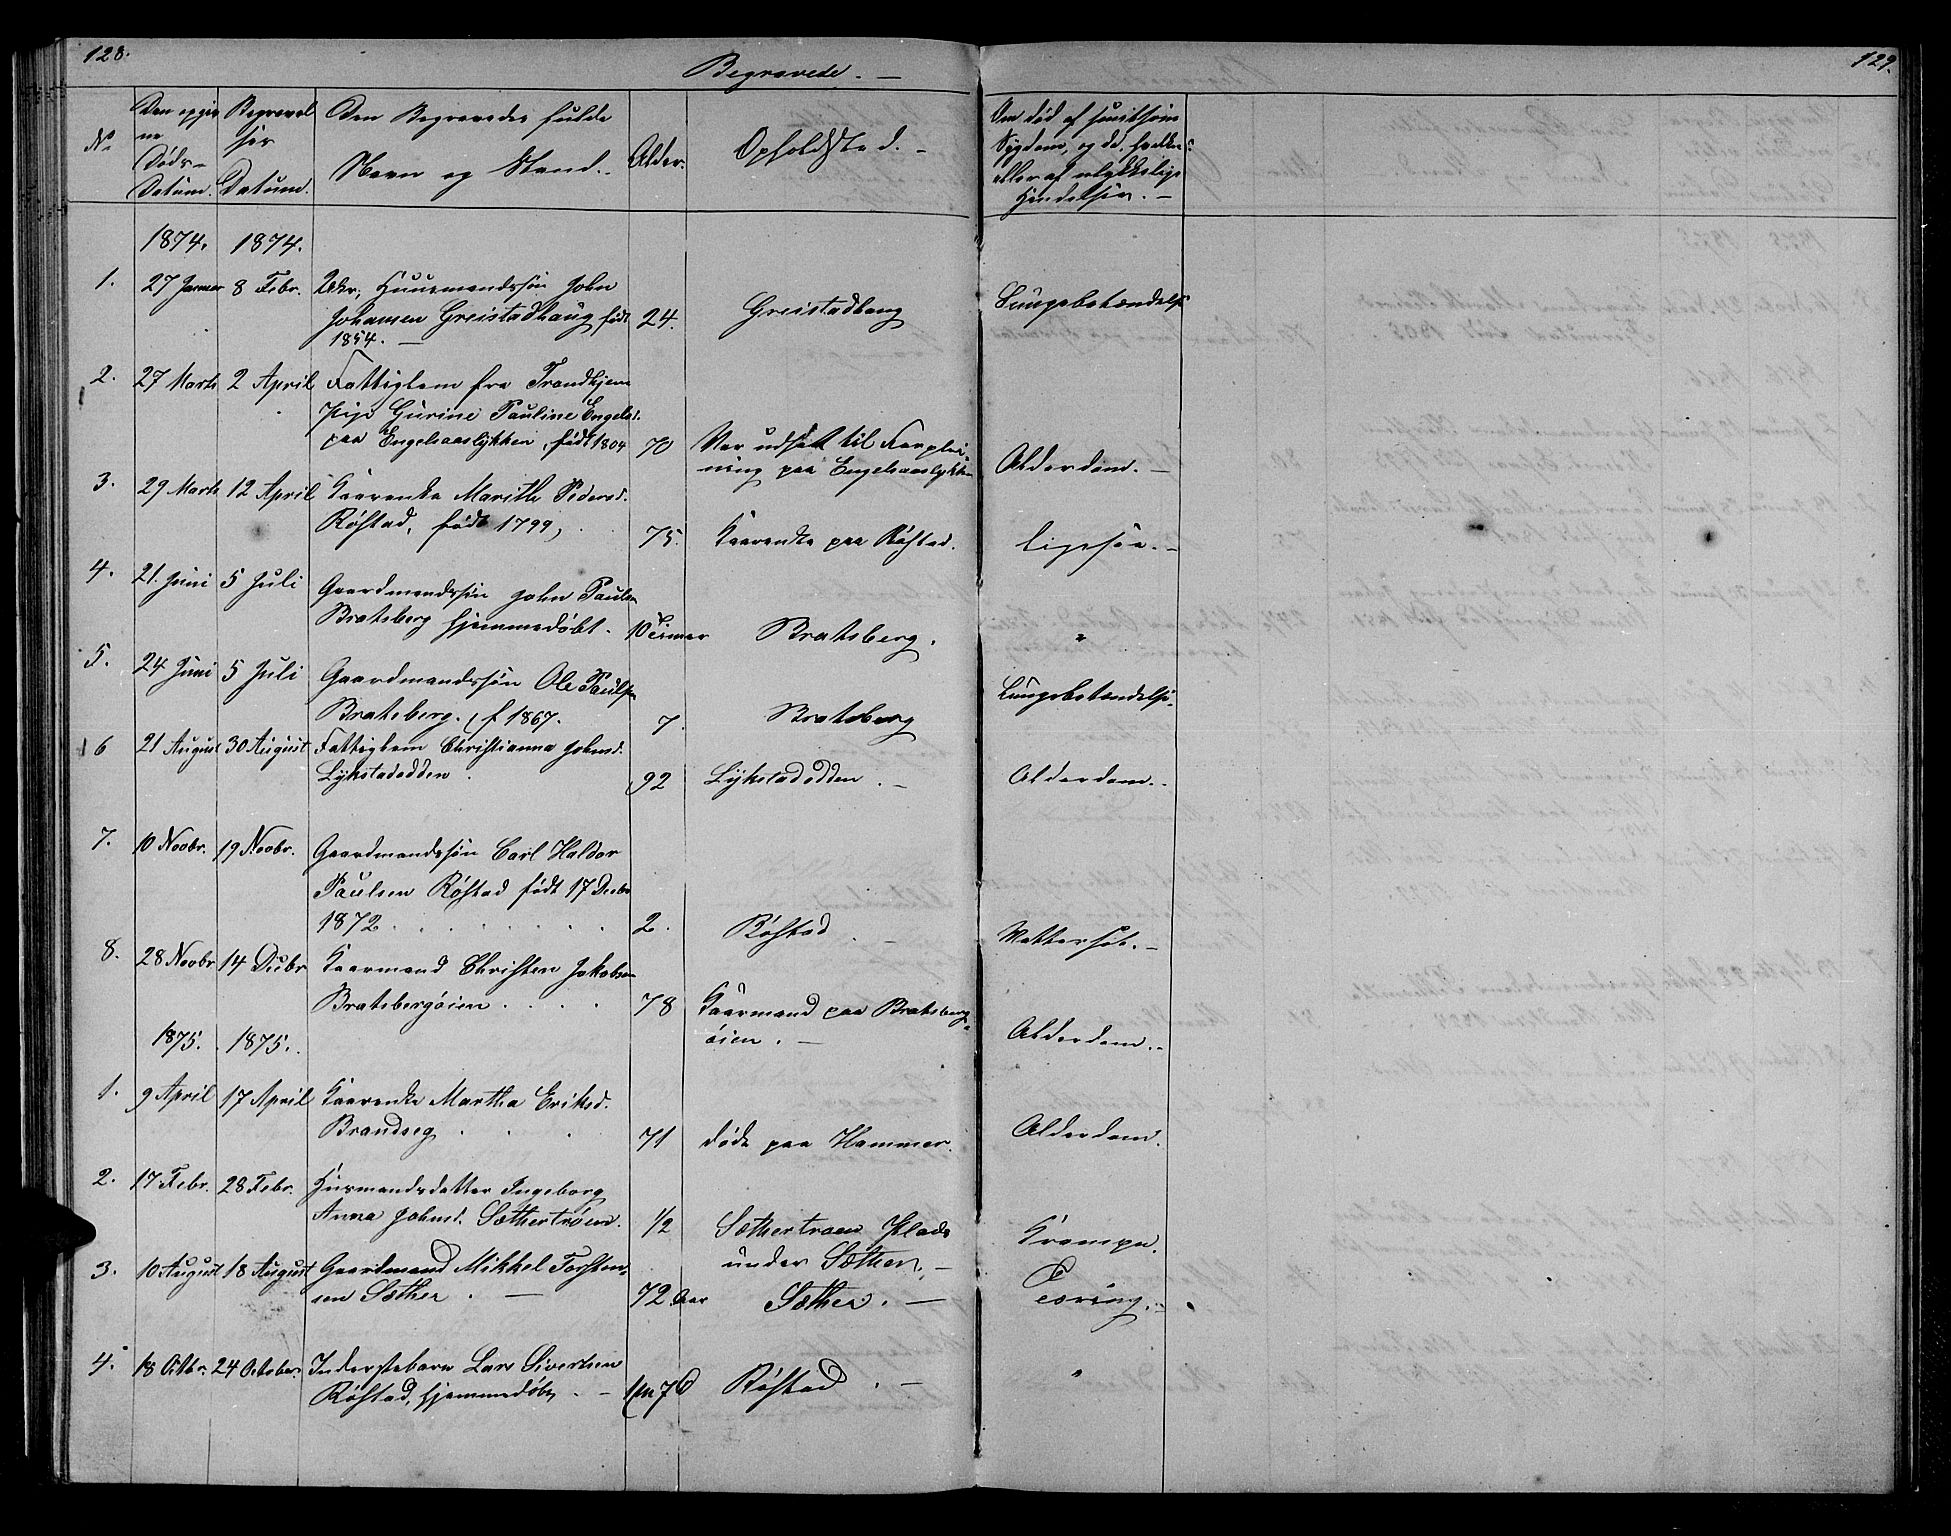 128.
Begravede. —
129.
No
Den opgiv
ne
Døds-
Datum.
Begravel
ses
Datum.
Den Begravedes fulde
Navn og Stand.
Alder.
Opholdsted. -
Om død af smitsom
Sygdom, og da, hvilken?
eller af ulykkelige
Hændelser. —
1874. 1874.
1. 27 Januar 8 Febr. Huusmandssøn John
Johansen Greistadhaug født 24. Greistadhaug Lungebetændelse
1854. —
2. 27 Marts 2 April Fattiglem fra Trondhjem
Pige Gurine Pauline Engels.
paa Engelsaaslykken, født 1804 70 Var udsat til Forplei-
ning paa Engelsaaslykken Alderdom. —
3. 29 Marts 12 April Kaarenke Marithe Pedersd.
Røstad, født 1799, 75. Kaarenke paa Røstad. Ligesaa. -
4. 21. Juni 5 Juli Gaardmandssøn John Paulsen
Bratsberg hjemmedøbt. 10 Timer Bratsberg. "
5. 24 Juni 5 Juli Gaardmandssøn Ole Paulsen
Bratsberg. f 1867. 7. Bratsberg Lungebetændelse.
6 21 August 30 August Fattiglem Christianna Johnsd.
Lykstadodden. 92 Lykstadodden. - Alderdom. -
7. 10 Novbr. 19 Novbr. Gaardmandssøn Carl Haldor
Paulsen Røstad født 17 Decbr
1872 . . . . . 2. Røstad. - Vattersot. -
8. 28 Novbr 14 Decbr Kaarmand Christen Jakobsen
Bratsbergøien . . . . 78 Kaarmand paa Bratsberg-
øien. — Alderdom. -
1875. 1875.
1. 9 April 17 April Kaarenke Martha Eriksd.
Brandseg . . . 71 døde paa Hammer. Alderdom.
2. 17 Febr. 28 Febr. Husmandsdatter Ingeborg
Anna Johnsd. Sæthertrøen. 1/2 Sæthertrøen Plads
under Sæther. - Krampe.
3. 10 August 18 August Gaardmand Mikkel Torsten-
sen Sæther. — 72 Aar Sæther. — Tæring. -
4. 18 Octbr. 24 October. Inderstebarn Lars Sivertsen
Røstad, hjemmedøbt. - 1 m 7 D Røstad. - "